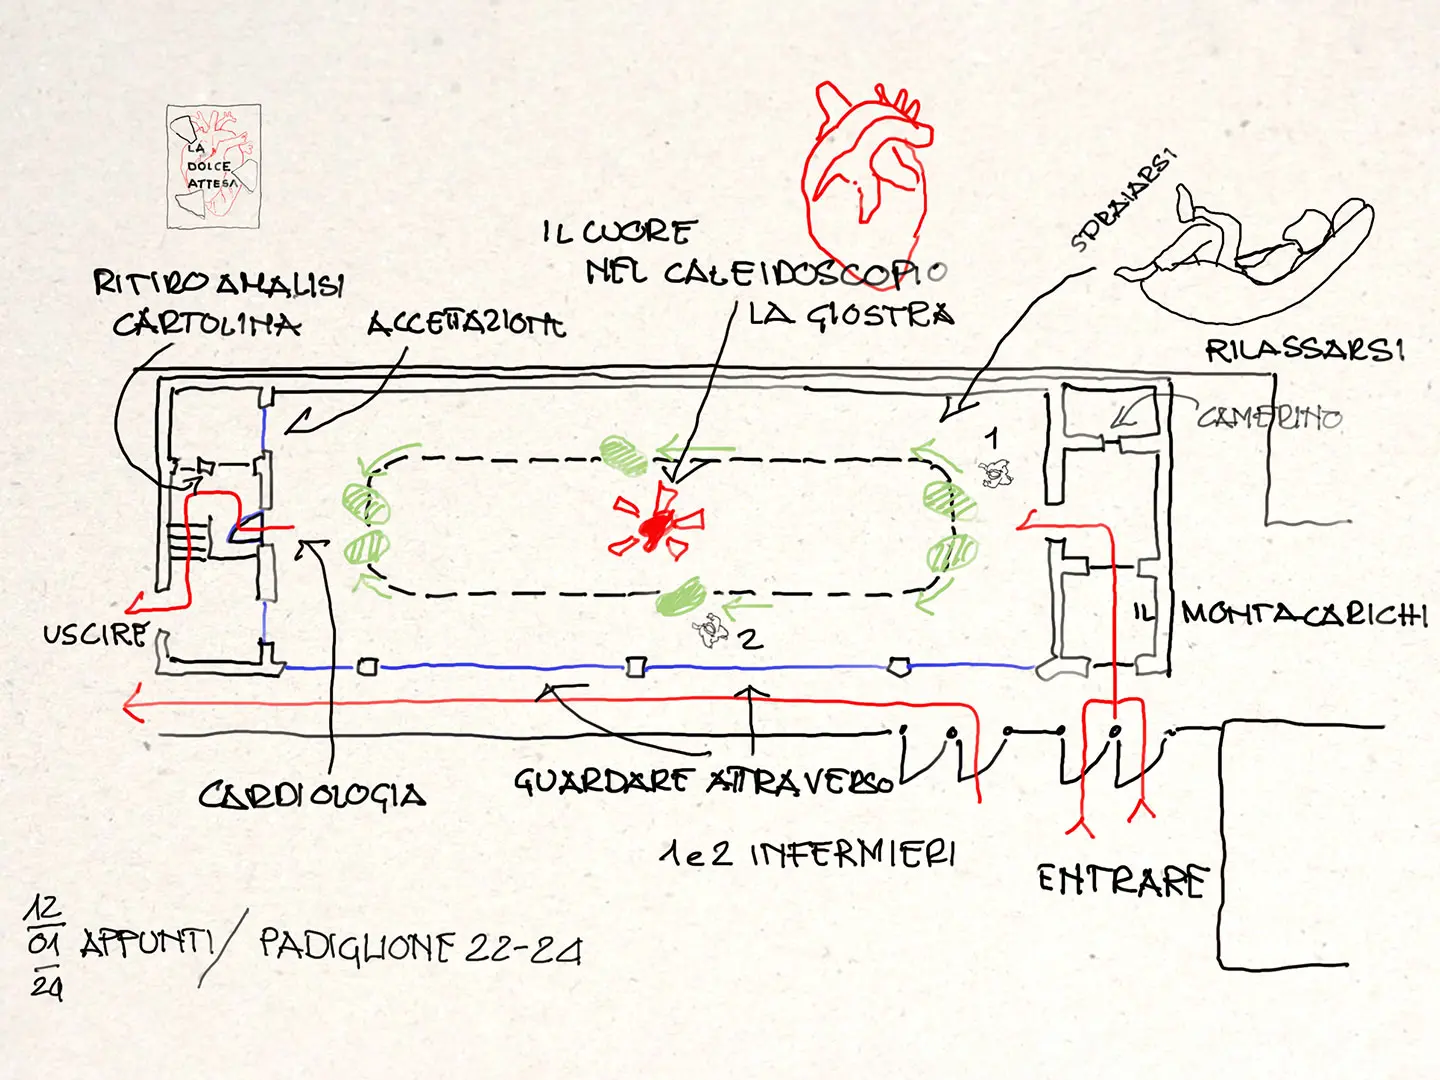 LA
DOLCE
ATTESA
RITIRO ANALISI
CARTOLINA
ACCETTAZIONE
IL CUORE
NEL CALEIDOSCOPIO
LA GIOSTRA
SDRAIARSI
RILASSARSI
CAMERINO
1
2
USCIRE
IL MONTACARICHI
CARDIOLOGIA
GUARDARE ATTRAVERSO
1 e 2 INFERMIERI
ENTRARE
12
01
24
APPUNTI / PADIGLIONE 22-24